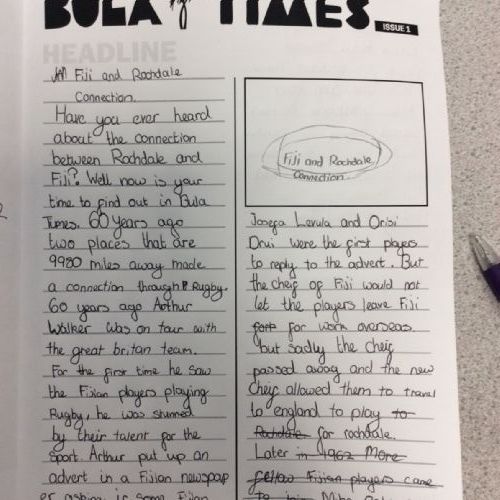 BULA TIMES
ISSUE 1
HEADLINE
Fiji and Rochdale
Connection.
Have you ever heard
about the connection
between Rochdale and
Fiji? Well now is your
time to find out in Bula
Times. 60 years ago
two places that are
9980 miles away made
a connection through Rugby.
60 years ago Arthur
Walker was on tour with
the great britan team.
For the first time he saw
the Fijian players playing
Rugby, he was stunned
by their talent for the
sport. Arthur put up an
advert in a Fijian newspap
er asking is some Fijian
Fiji and Rochdale
Connection
Josefa Levula and Orisi
Drui were the first players
to reply to the advert. But
the cheif of Fiji would not
let the players leave Fiji
for work overseas.
but sadly the cheif
passed away and the new
Cheif allowed them to travel
to england to play to
Rochdale for rochdale.
Later in 1962 More
fellow Fijian players came
to